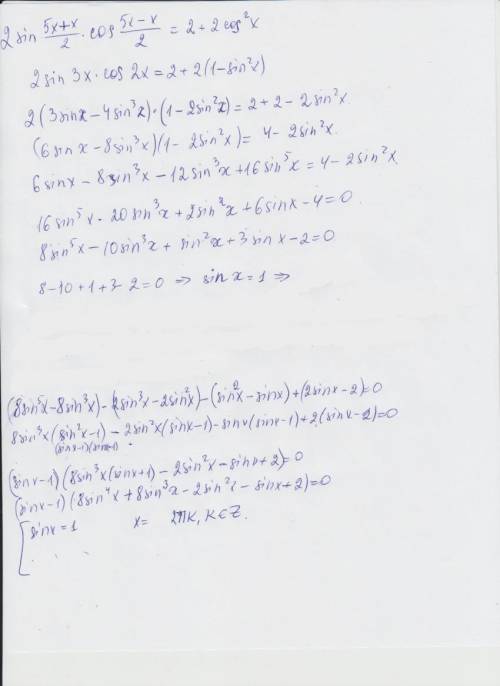 2 sin (5x+x)/2 · cos (5x-x)/2 = 2 + 2cos²x
2sin 3x · cos 2x = 2 + 2(1-sin²x)
2(3sinx - 4sin³x)·(1-2sin²x) = 2+2-2sin²x
(6sinx - 8sin³x)(1-2sin²x) = 4-2sin²x
6sinx - 8sin³x - 12sin³x + 16sin⁵x = 4-2sin²x
16sin⁵x - 20sin³x + 2sin²x + 6sinx - 4 = 0
8sin⁵x - 10sin³x + sin²x + 3sinx - 2 = 0
8-10+1+3-2=0 ⇒ sinx=1 ⇒
(8sin⁵x - 8sin³x) - (2sin³x - 2sin²x) - (sin²x - sinx) + (2sinx-2) = 0
8sin³x(sin²x-1) - 2sin²x(sinx-1) - sinx(sinx-1) + 2(sinx-2) = 0
(sinx-1)(sinx+1)
(sinx-1)(8sin³x(sinx+1) - 2sin²x - sinx + 2) = 0
(sinx-1)(8sin⁴x + 8sin³x - 2sin²x - sinx + 2) = 0
[ sinx = 1 x = 2πk, k∈Z.